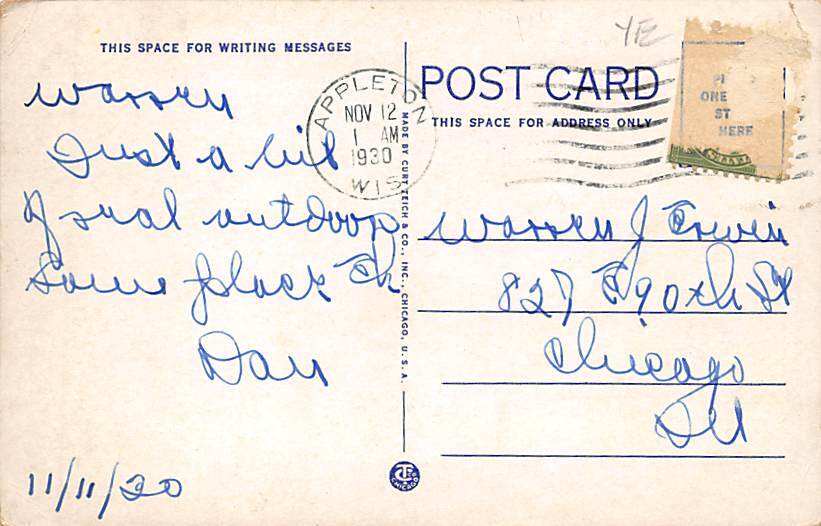 YE
THIS SPACE FOR WRITING MESSAGES
Warren
Just a bit
of real outdoor
Some place Eh
Dan
11/11/30
APPLETON
NOV 12
1 AM
1930
WIS
MADE BY CURT TEICH & CO., INC., CHICAGO, U. S. A.
CHICAGO
POST CARD
THIS SPACE FOR ADDRESS ONLY
ONE
ST
HERE
Warren J Erwin
827 E 90th St
Chicago
Ill